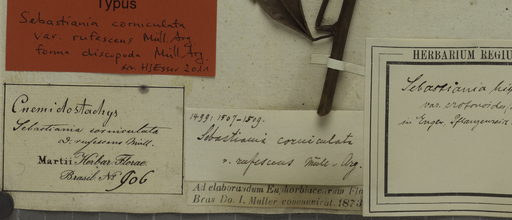 Typus
Sebastiania corniculata
var. rufescens Müll. Arg.
forma discopoda Müll. Arg.
HJEsser 2021
Cnemidostachys
Sebastiania corniculata
δ. rufescens Müll.
Martii Herbar. Florae
Brasil. No 906
1499; 1807-1809.
Sebastiania corniculata
v. rufescens Müll. Arg.
Ad elaborandum Euphorbiacearum Flo
Bras Do. J. Muller communicat. 187
HERBARIUM REGIU
Sebastiania
var. crotonoide
in Engler, Pflanzenreich